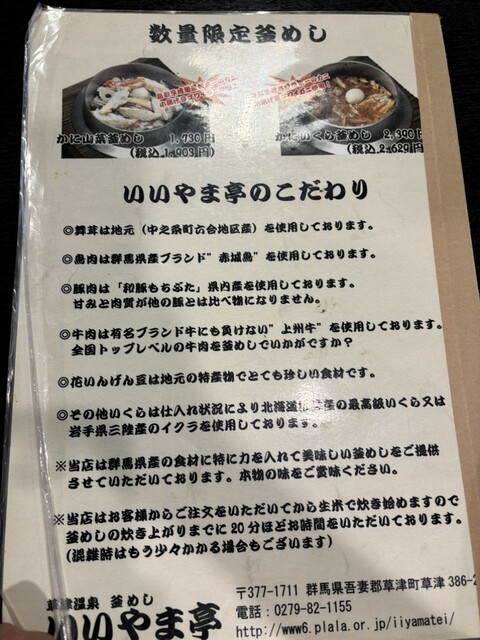 数量限定釜めし
かに山菜釜めし 1,730円
(税込 1,903円)
かにいくら釜めし 2,390円
(税込 2,629円)
いいやま亭のこだわり
◎舞茸は地元（中之条町六合地区産）を使用しております。
◎鳥肉は群馬県産ブランド”赤城鳥”を使用しております。
◎豚肉は「和豚もちぶた」県内産を使用しております。
甘みと肉質が他の豚とは比べ物になりません。
◎牛肉は有名ブランド牛にも負けない”上州牛”を使用しております。
全国トップレベルの牛肉を釜めしでいかがですか？
◎花いんげん豆は地元の特産物でとても珍しい食材です。
◎その他いくらは仕入れ状況により北海道産の最高級いくら又は
岩手県三陸産のイクラを使用しております。
※当店は群馬県産の食材に特に力を入れて美味しい釜めしをご提供
させていただいております。本物の味をご賞味ください。
※当店はお客様からご注文をいただいてから生米で炊き始めますので
釜めしの炊き上がりまでに20分ほどお時間をいただいております。
(混雑時はもう少々かかる場合もございます)
草津温泉 釜めし
いいやま亭
〒377-1711 群馬県吾妻郡草津町草津 386-2
電話：0279-82-1155
http://www6.plala.or.jp/iiyamatei/